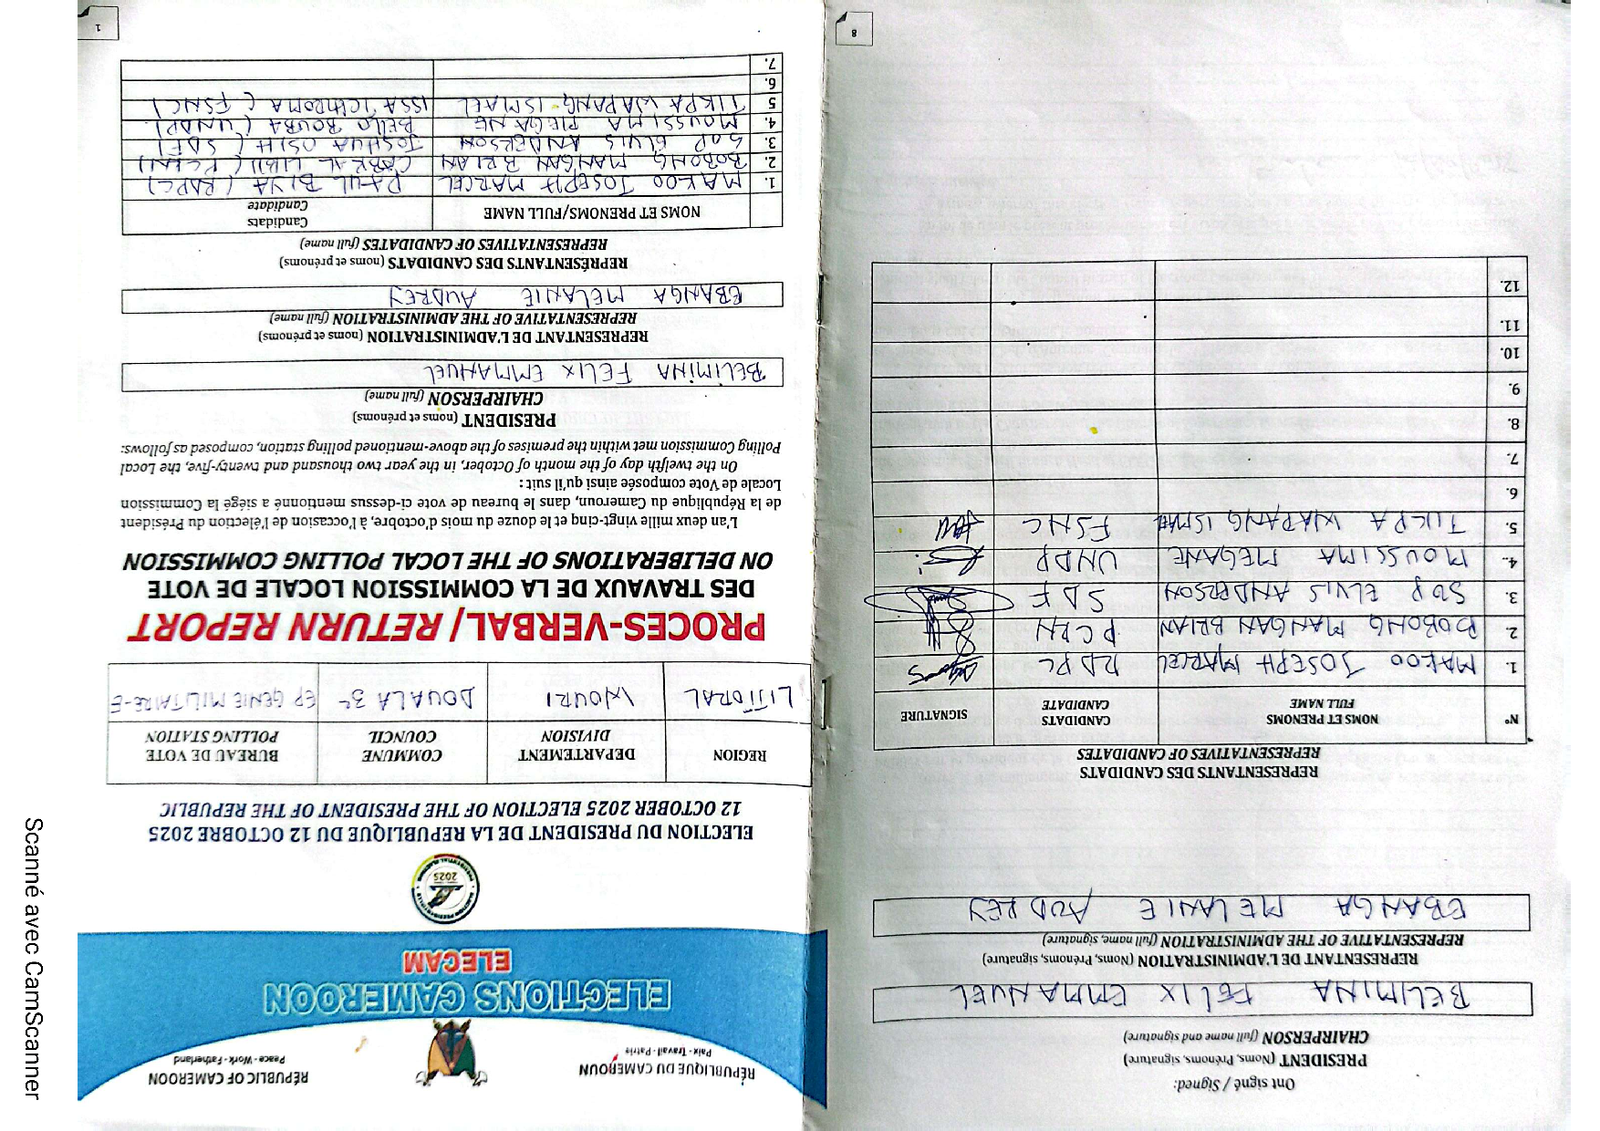 RÉPUBLIQUE DU CAMEROUN
Paix - Travail - Patrie
RÉPUBLIC OF CAMEROON
Peace - Work - Fatherland
ELECTIONS CAMEROON
ELECAM
2025
ELECTION DU PRESIDENT DE LA REPUBLIQUE DU 12 OCTOBRE 2025
12 OCTOBER 2025 ELECTION OF THE PRESIDENT OF THE REPUBLIC
REGION
DEPARTEMENT
DIVISION
COMMUNE
COUNCIL
BUREAU DE VOTE
POLLING STATION
LITTORAL
WOURI
DOUALA 3e
EP GENIE MILITAIRE-E
PROCES-VERBAL/ RETURN REPORT
DES TRAVAUX DE LA COMMISSION LOCALE DE VOTE
ON DELIBERATIONS OF THE LOCAL POLLING COMMISSION
L'an deux mille vingt-cinq et le douze du mois d'octobre, à l'occasion de l'élection du Président
de la République du Cameroun, dans le bureau de vote ci-dessus mentionné a siégé la Commission
Locale de Vote composée ainsi qu'il suit :
On the twelfth day of the month of October, in the year two thousand and twenty-five, the Local
Polling Commission met within the premises of the above-mentioned polling station, composed as follows:
PRESIDENT (noms et prénoms)
CHAIRPERSON (full name)
BELIMINA FELIX EMMANUEL
REPRESENTANT DE L'ADMINISTRATION (noms et prénoms)
REPRESENTATIVE OF THE ADMINISTRATION (full name)
EBANGA MELANIE AUDREY
REPRÉSENTANTS DES CANDIDATS (noms et prénoms)
REPRESENTATIVES OF CANDIDATES (full name)
NOMS ET PRENOMS/FULL NAME
Candidats
Candidate
1. MAKOO JOSEPH MARCEL PAUL BIYA (RDPC)
2. BOBONG MANGAN BRIAN CABRAL LIBII (PCRN)
3. SOP ELVIS ANDERSON JOSHUA OSIH (SDF)
4. MOUSSIMA MEGANE BELLO BOUBA (UNDP)
5 TIKPA WAPANG ISMAEL ISSA TCHIROMA (FSNC)
6.
7.
1
Ont signé / Signed:
PRESIDENT (Noms, Prénoms, signature)
CHAIRPERSON (full name and signature)
BELIMINA FELIX EMMANUEL
REPRESENTANT DE L'ADMINISTRATION (Noms, Prénoms, signature)
REPRESENTATIVE OF THE ADMINISTRATION (full name, signature)
EBANGA MELANIE AUDREY
REPRESENTANTS DES CANDIDATS
REPRESENTATIVES OF CANDIDATES
N°
NOMS ET PRENOMS
FULL NAME
CANDIDATS
CANDIDATE
SIGNATURE
1. MAKOO JOSEPH MARCEL RDPC
2. BOBONG MANGAN BRIAN PCRN
3. SOP ELVIS ANDERSON SDF
4. MOUSSIMA MEGANE UNDP
5. TIKPA WAPANG ISMAEL FSNC
6.
7.
8.
9.
10.
11.
12.
8
Scanné avec CamScanner